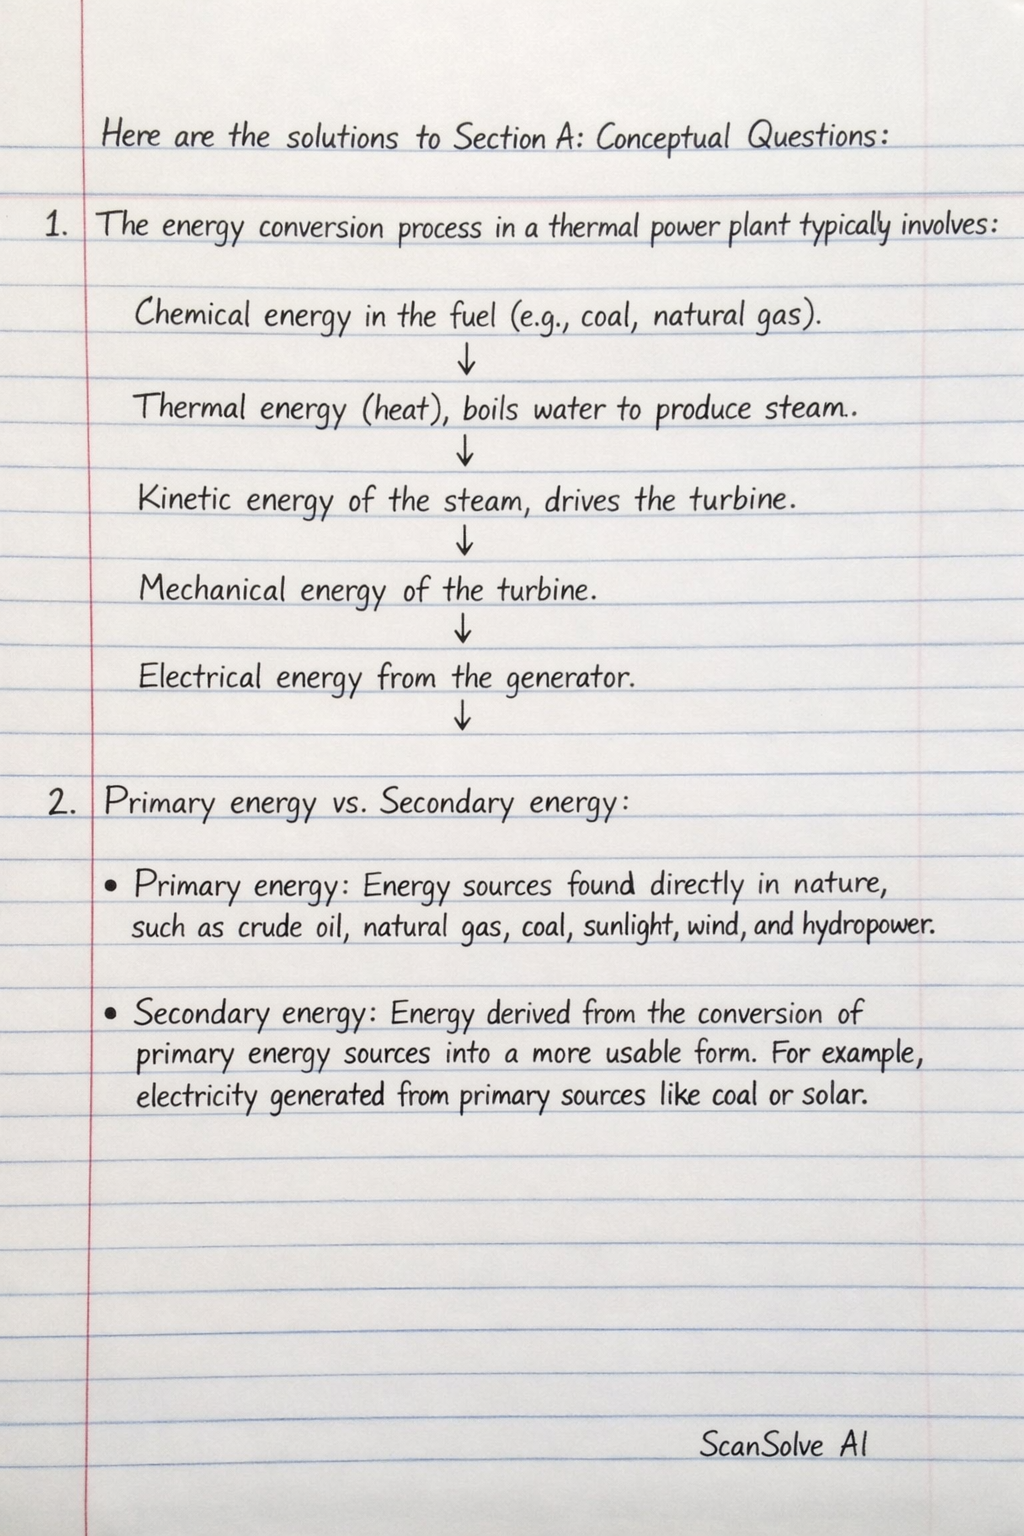 Here are the solutions to Section A: Conceptual Questions:
1. The energy conversion process in a thermal power plant typically involves:
Chemical energy in the fuel (e.g., coal, natural gas).
↓
Thermal energy (heat), boils water to produce steam..
↓
Kinetic energy of the steam, drives the turbine.
↓
Mechanical energy of the turbine.
↓
Electrical energy from the generator.
↓
2. Primary energy vs. Secondary energy:
• Primary energy: Energy sources found directly in nature,
such as crude oil, natural gas, coal, sunlight, wind, and hydropower.
• Secondary energy: Energy derived from the conversion of
primary energy sources into a more usable form. For example,
electricity generated from primary sources like coal or solar.
ScanSolve AI